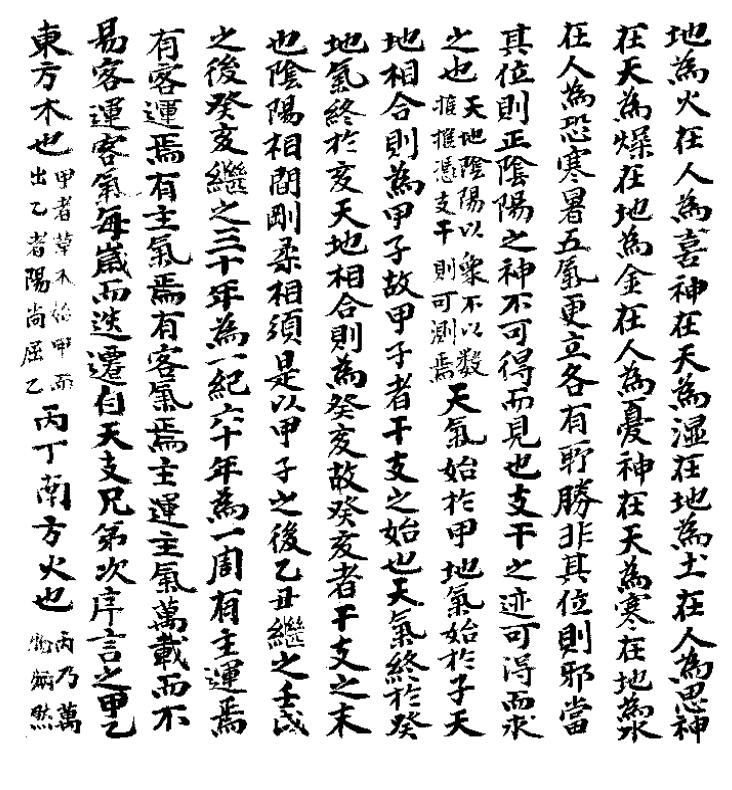 地為火在人為喜神在天為湿在地為土在人為思神
在天為燥在地為金在人為憂神在天為寒在地為水
在人為恐寒暑五氣更立各有所勝非其位則邪當
其位則正陰陽之神不可得而見也支干之迹可得而求
之也天地陰陽以象不以數推推憑支干則可測焉天氣始於甲地氣始於子天
地相合則為甲子故甲子者干支之始也天氣終於癸
地氣終於亥天地相合則為癸亥故癸亥者干支之末
也陰陽相間剛柔相須是以甲子之後乙丑繼之壬戌
之後癸亥繼之三十年為一紀六十年為一周有主運焉
有客運焉有主氣焉有客氣焉主運主氣萬載而不
易客運客氣每歲而迭遷自天支兄第次序言之甲乙
東方木也甲者草木始甲而出乙者陽尚屈乙丙丁南方火也丙乃萬物炳然